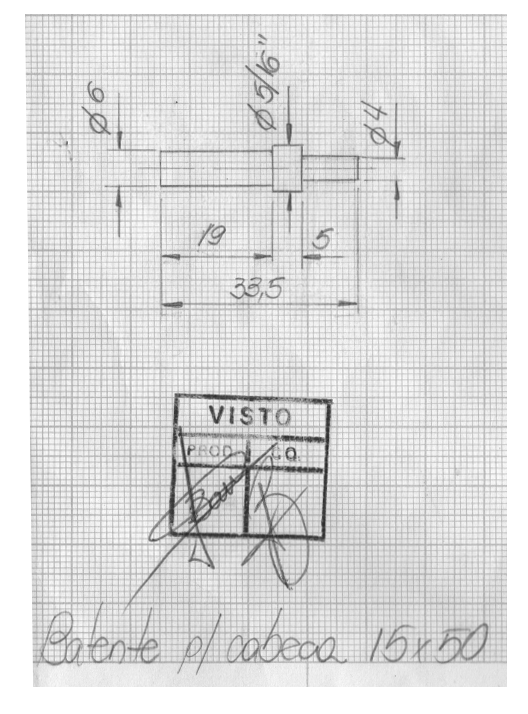 Ø6
Ø5/16"
Ø4
19
5
33,5
VISTO
PROD. C.Q.
Batente p/ cabeça 15x50